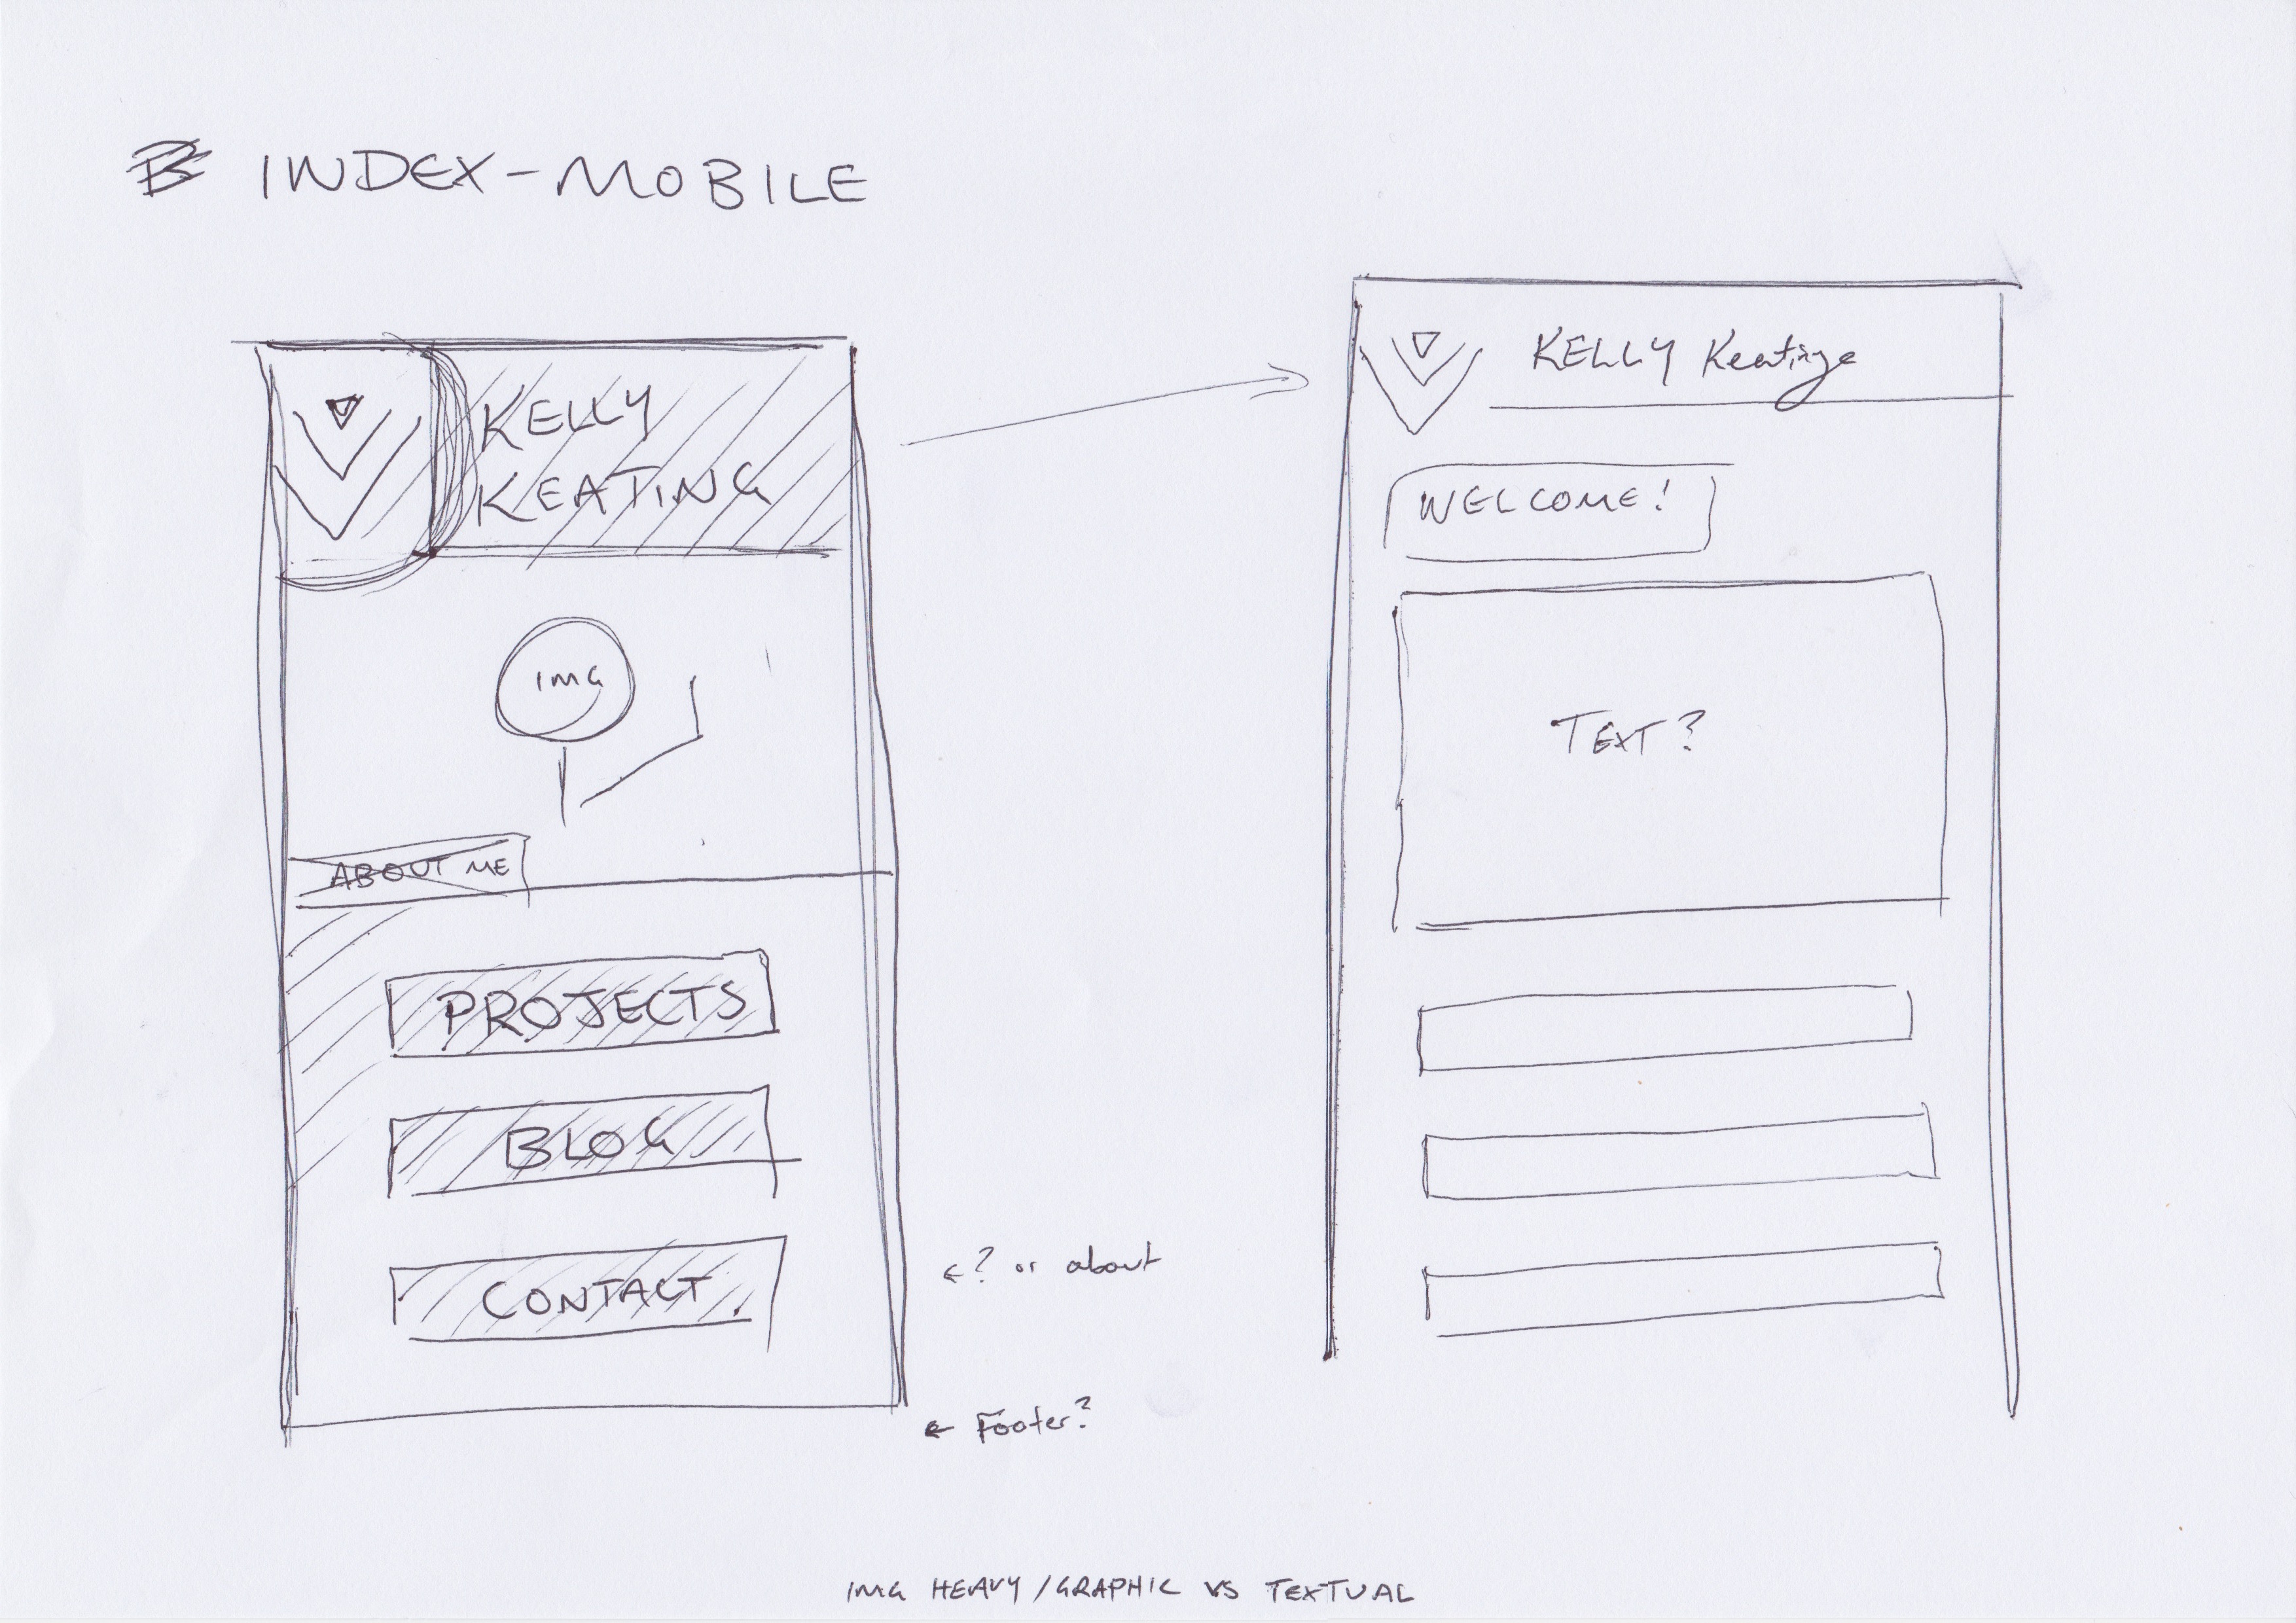 INDEX-MOBILE
KELLY
KEATING
IMG
ABOUT ME
PROJECTS
BLOG
CONTACT
? or about
Footer?
KELLY Keating
WELCOME!
TEXT?
IMG HEAVY / GRAPHIC VS TEXTUAL